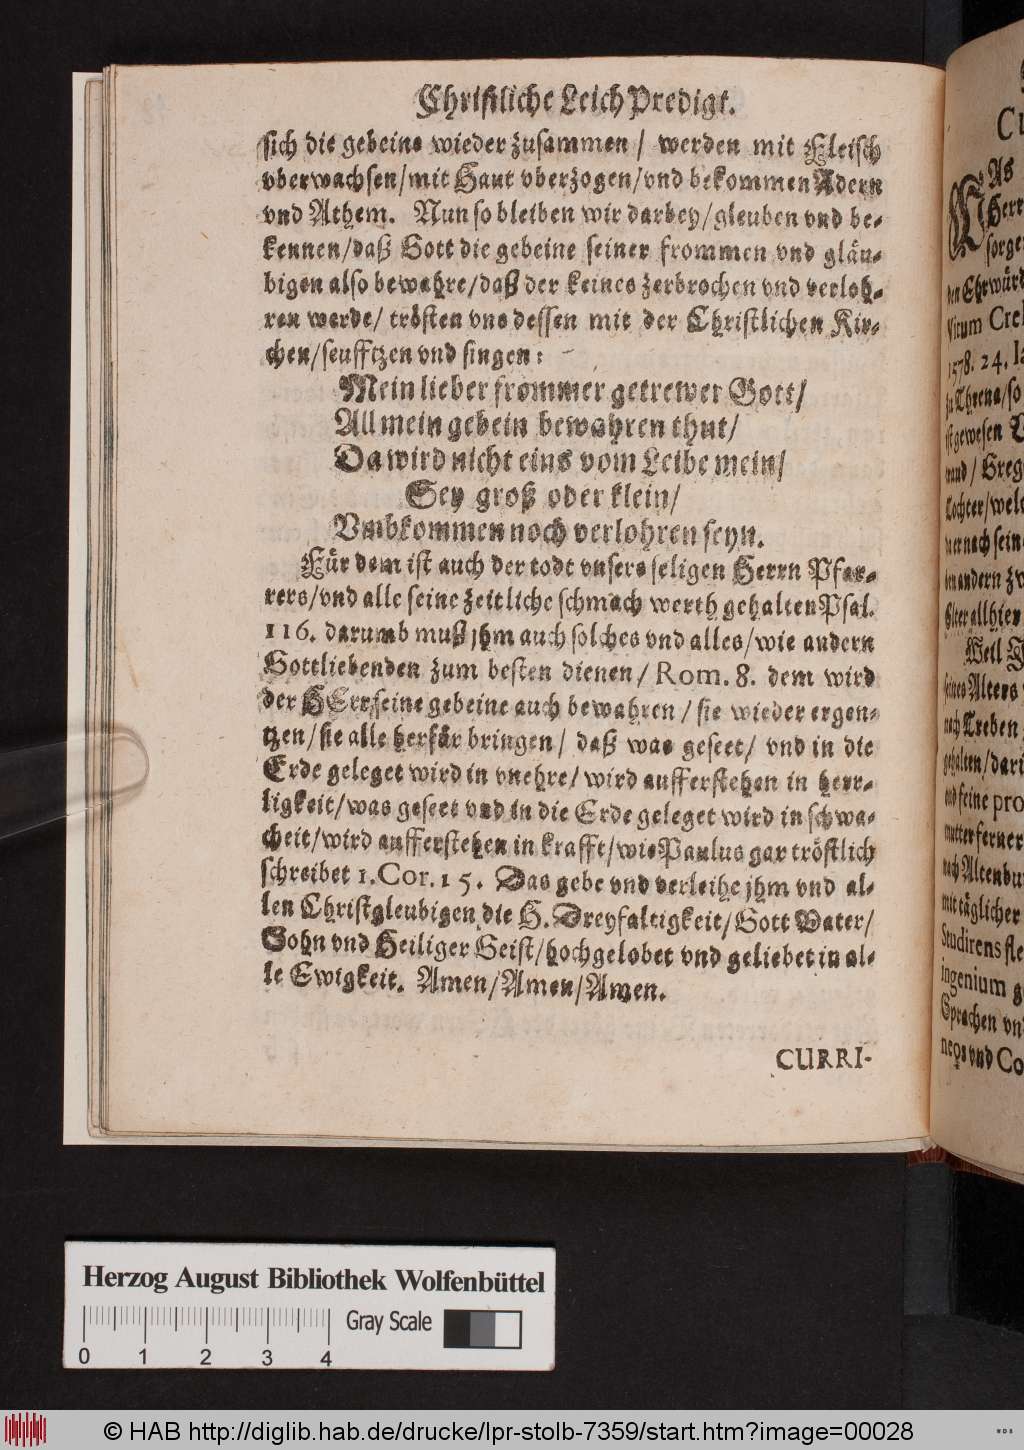 Christliche Leich Predigt.
sich die gebeine wieder zusammen / werden mit Fleisch
vberwachsen/mit Haut vberzogen/vnd bekommen Adern
vnd Athem. Nun so bleiben wir darbey/gleuben vnd be-
kennen/daß Gott die gebeine seiner frommen vnd gläu-
bigen also bewahre/daß der keines zerbrochen vnd verloh-
ren werde/ trösten vns dessen mit der Christlichen Kir-
chen/seufftzen vnd singen:
Mein lieber frommer getrewer Gott/
All mein gebein bewahren thut/
Da wird nicht eins vom Leibe mein/
Sey groß oder klein/
Vmbkommen noch verlohren seyn.
Für dem ist auch der todt vnsers seligen Herrn Pfar-
rers/vnd alle seine zeitliche schmach werth gehalten Psal.
116. darumb muß jhm auch solches vnd alles/wie andern
Gottliebenden zum besten dienen/ Rom. 8. dem wird
der HErr seine gebeine auch bewahren / sie wieder ergen-
tzen/sie alle herfür bringen/ daß was geseet/ vnd in die
Erde geleget wird in vnehre/ wird aufferstehen in herr-
ligkeit/was geseet vnd in die Erde geleget wird in schwa-
cheit/wird aufferstehen in krafft/wie Paulus gar tröstlich
schreibet 1. Cor. 15. Das gebe vnd verleihe jhm vnd al-
len Christgleubigen die H. Dreyfaltigkeit/Gott Vater/
Sohn vnd Heiliger Geist/hochgelobet vnd geliebet in al-
le Ewigkeit. Amen/Amen/Amen.
CURRI-
As
Herr
sorge
den Ehrwürd
Vitum Crel
1578. 24. Ia
zu Threna/so
ist gewesen
/ Greg
Tochter/welc
ner nach sein
andern zw
Elter allhier
Weil
seines Alters
nach Treben
gehalten/dari
vnd seine pro
mutter ferner
nach Altenbur
mit täglicher
Studirens fle
ingenium g
Sprachen vnd
vnd Co
Herzog August Bibliothek Wolfenbüttel
Gray Scale
0 1 2 3 4
© HAB http://diglib.hab.de/drucke/lpr-stolb-7359/start.htm?image=00028